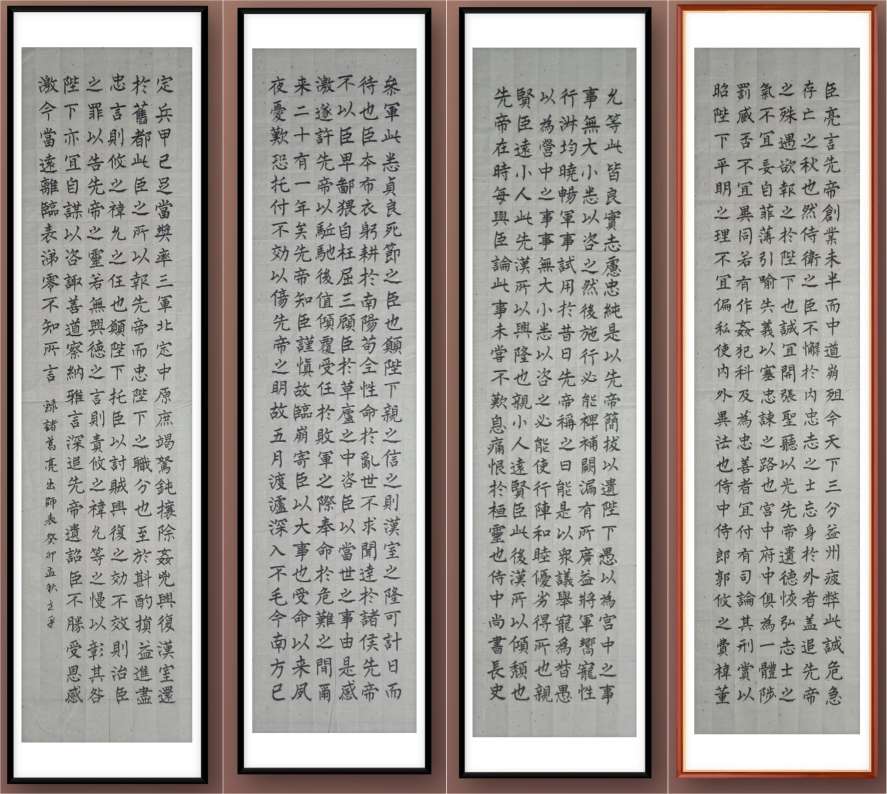 臣亮言先帝創業未半而中道崩殂今天下三分益州疲弊此誠危急
存亡之秋也然侍衛之臣不懈於内忠志之士忘身於外者盖追先帝
之殊遇欲報之於陛下也誠宜開張聖聽以光先帝遺德恢弘志士之
氣不宜妄自菲薄引喻失義以塞忠諫之路也宮中府中俱為一體陟
罰臧否不宜異同若有作姦犯科及為忠善者宜付有司論其刑賞以
昭陛下平明之理不宜偏私使内外異法也侍中侍郎郭攸之費禕董
允等此皆良實志慮忠純是以先帝簡拔以遺陛下愚以為宮中之事
事無大小悉以咨之然後施行必能裨補闕漏有所廣益將軍嚮寵性
行淑均曉暢軍事試用於昔日先帝稱之曰能是以衆議舉寵為督愚
以為營中之事事無大小悉以咨之必能使行陣和睦優劣得所也親
賢臣遠小人此先漢所以興隆也親小人遠賢臣此後漢所以傾頹也
先帝在時每與臣論此事未嘗不歎息痛恨於桓靈也侍中尚書長史
參軍此悉貞良死節之臣也願陛下親之信之則漢室之隆可計日而
待也臣本布衣躬耕於南陽苟全性命於亂世不求聞達於諸侯先帝
不以臣卑鄙猥自枉屈三顧臣於草廬之中咨臣以當世之事由是感
激遂許先帝以駈馳後值傾覆受任於敗軍之際奉命於危難之間爾
来二十有一年矣先帝知臣謹慎故臨崩寄臣以大事也受命以来夙
夜憂歎恐托付不効以傷先帝之明故五月渡瀘深入不毛今南方已
定兵甲已足當獎率三軍北定中原庶竭駑鈍攘除姦兇興復漢室還
於舊都此臣之所以報先帝而忠陛下之職分也至於斟酌損益進盡
忠言則攸之禕允之任也願陛下托臣以討賊興復之効不效則治臣
之罪以告先帝之靈若無興德之言則責攸之禕允等之慢以彰其咎
陛下亦宜自謀以咨諏善道察納雅言深追先帝遺詔臣不勝受恩感
激今當遠離臨表涕零不知所言 錄諸葛亮出師表癸卯孟秋